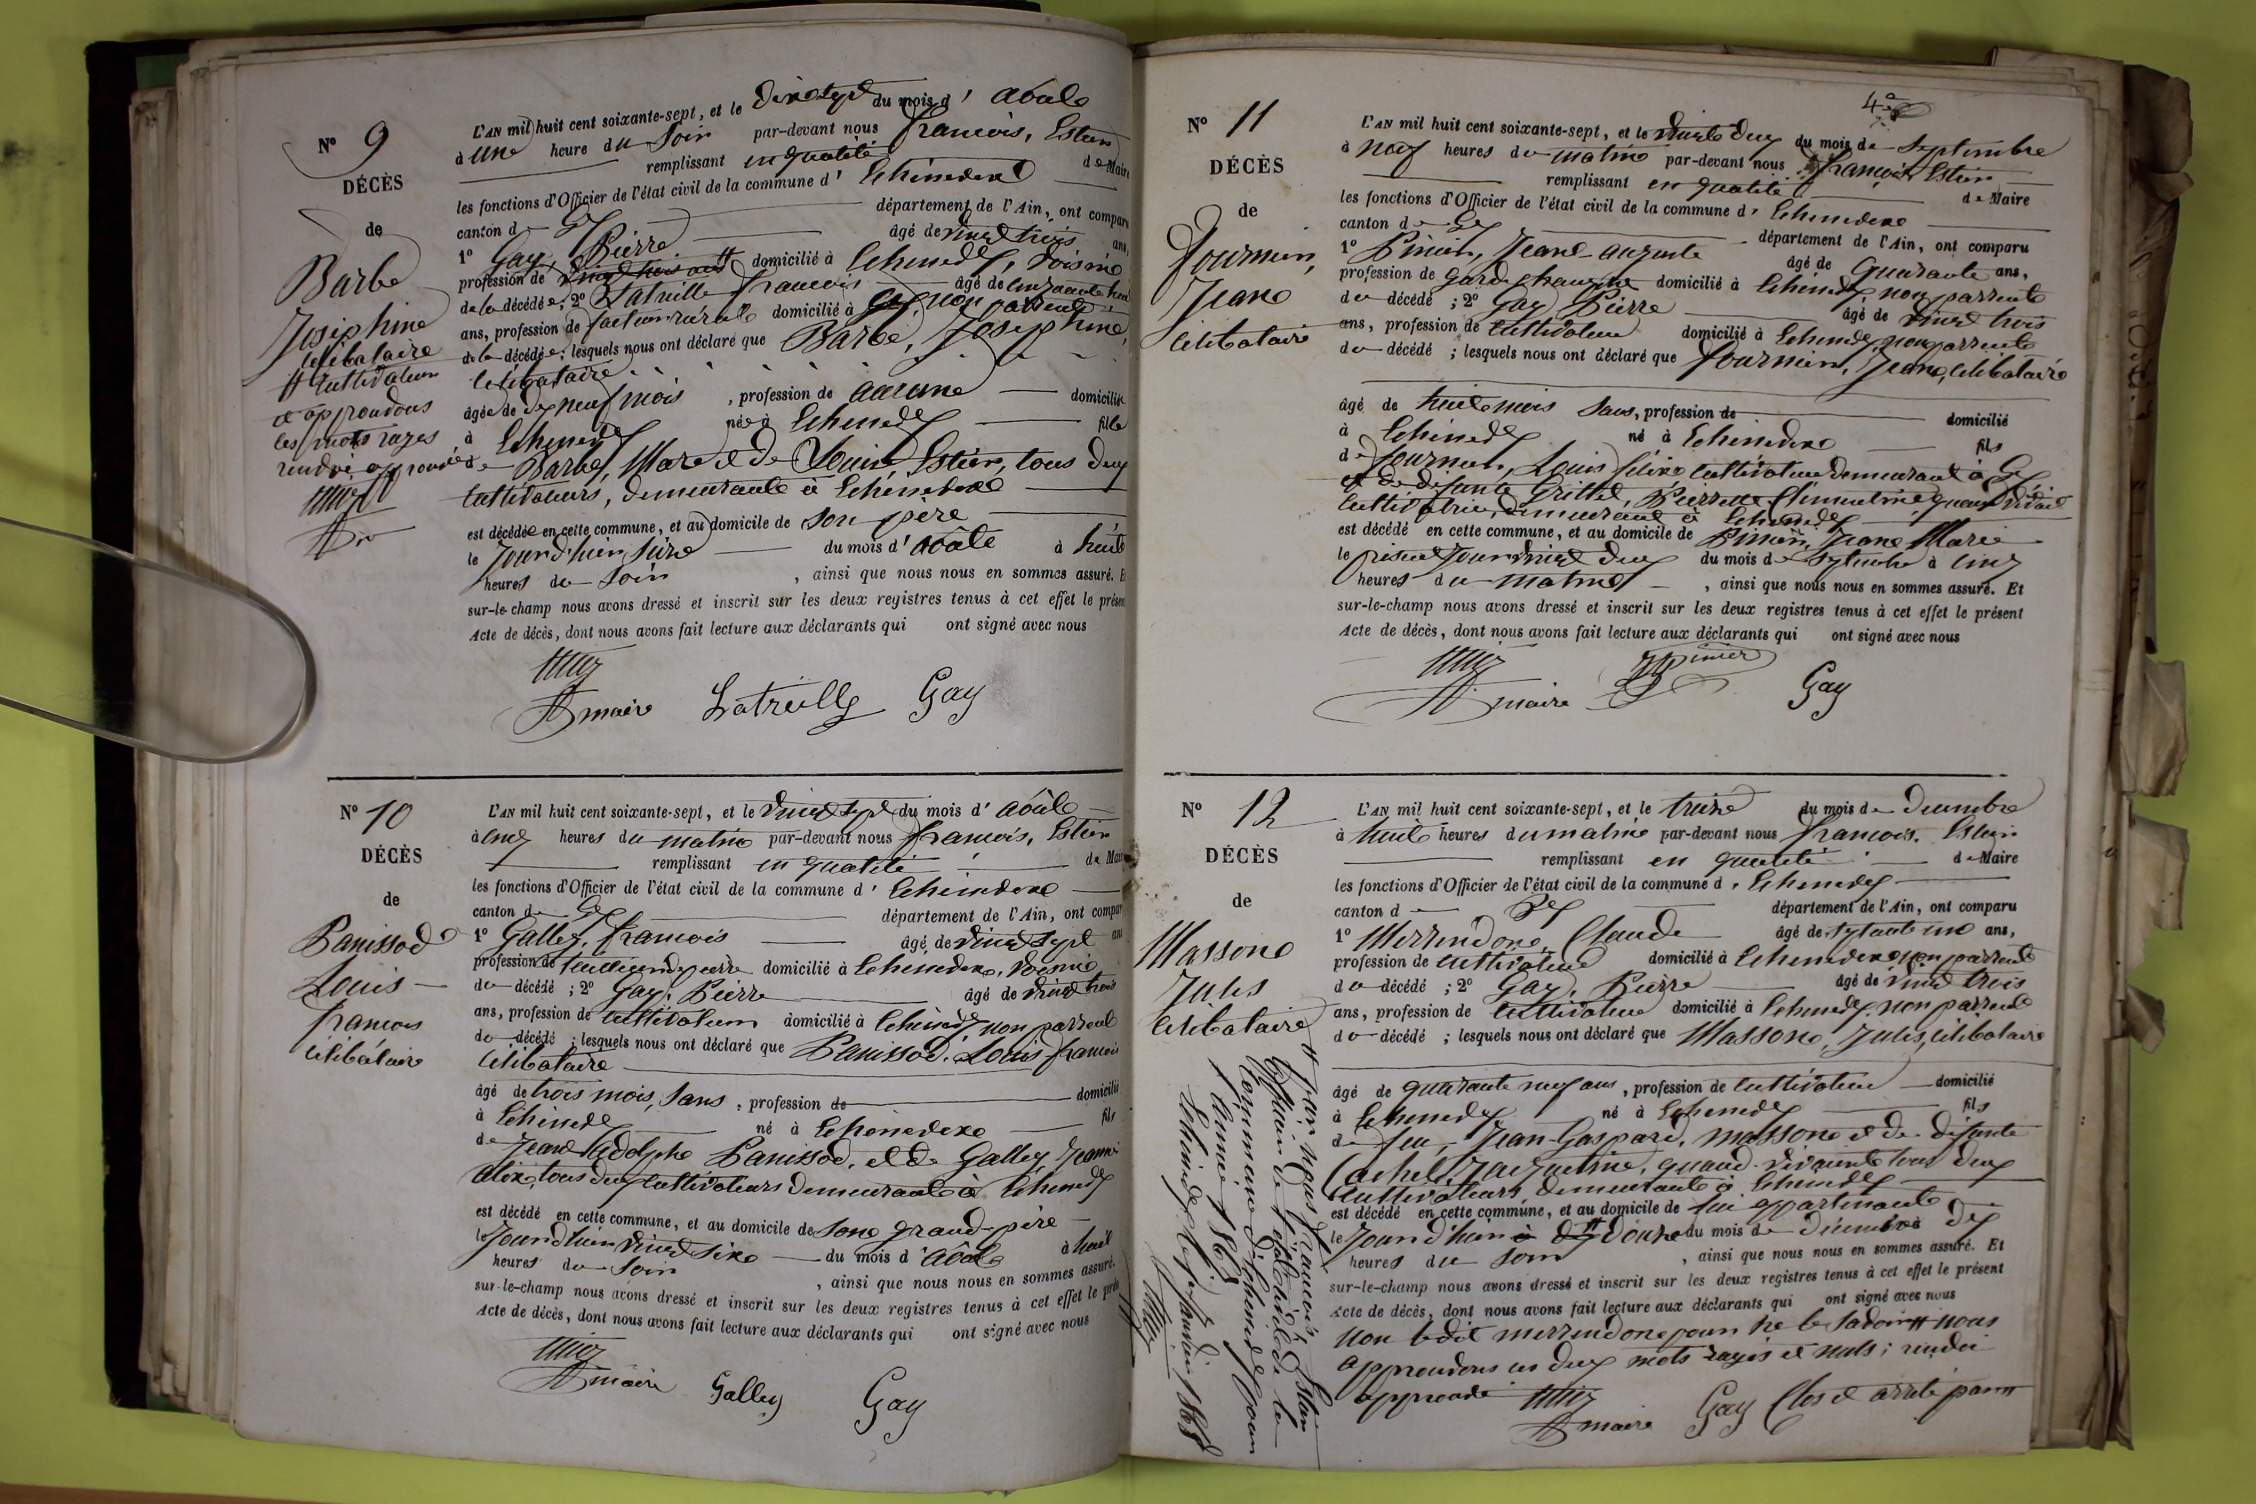 Nº 9
DÉCÈS
de
Barbe
Joséphine
célibataire
# cultivateur
et approuvons
les mots rayés
L'AN mil huit cent soixante-sept, et le dix sept du mois d' aoûte
à une heure du Soir par-devant nous François, Estier
remplissant en qualité de Maire
les fonctions d'Officier de l'état civil de la commune d' Echenevex
canton de Gex département de l'Ain, ont comparu
1º Gay, Pierre âgé de vingt trois ans,
profession de vingt trois ans # domicilié à Echenevex, voisin
de la décédée; 2º Latreille François âgé de cinquante huit
ans, profession de facteur rural domicilié à Gex, non parrent
de la décédée; lesquels nous ont déclaré que Barbe, Joséphine,
célibataire
âgée de dix neuf mois, profession de aucune domiciliée
à Echenevex née à Echenevex fille
de Barbe, Marc et de Louise, Estier, tous deux
cultivateurs, demeurante à Echenevex
est décédée en cette commune, et au domicile de son père
le Jourd'huier Seize du mois d' aoûte à huit
heures du Soir, ainsi que nous nous en sommes assuré. Et
sur-le-champ nous avons dressé et inscrit sur les deux registres tenus à cet effet le présent
Acte de décès, dont nous avons fait lecture aux déclarants qui ont signé avec nous
maire Latreille Gay
Nº 10
DÉCÈS
de
Panissod
Louis
francois
célibataire
L'AN mil huit cent soixante-sept, et le vingt sept du mois d' aoûte
à cinq heures du matin par-devant nous François, Estier
remplissant en qualité de Maire
les fonctions d'Officier de l'état civil de la commune d' Echenevex
canton de Gex département de l'Ain, ont comparu
1º Galley, francois âgé de vingt sept ans
profession de tailleur de pierre domicilié à Echenevex, voisin
du décédé; 2º Gay, Pierre âgé de vingt trois
ans, profession de cultivateur domicilié à Echenevex non parrent
du décédé; lesquels nous ont déclaré que Panissod, Louis francois
célibataire
âgé de trois mois, Sans, profession de domicilié
à Echenevex né à Echenevex fils
de Jean Adolphe Panissod, et de Galley Jeanne
alix, tous deux cultivateurs demeurante à Echenevex
est décédé en cette commune, et au domicile de son grand-père
le Jourd'huier vingt six du mois d' aoûte à huit
heures du Soir, ainsi que nous nous en sommes assuré.
sur-le-champ nous avons dressé et inscrit sur les deux registres tenus à cet effet le présent
Acte de décès, dont nous avons fait lecture aux déclarants qui ont signé avec nous
maire Galley Gay
4e
Nº 11
DÉCÈS
de
Fournier,
Jean
célibataire
L'AN mil huit cent soixante-sept, et le vingt deux du mois de Septembre
à neuf heures du matin par-devant nous François Estier
remplissant en qualité de Maire
les fonctions d'Officier de l'état civil de la commune d' Echenevex
canton de Gex département de l'Ain, ont comparu
1º Pinier, Jean auguste âgé de quarante ans,
profession de garde champêtre domicilié à Echenevex non parrente
du décédé; 2º Gay Pierre âgé de vingt trois
ans, profession de cultivateur domicilié à Echenevex non parrente
du décédé; lesquels nous ont déclaré que Fournier, Jean, célibataire
âgé de huit mois Sans, profession de domicilié
à Echenevex né à Echenevex fils
de Fournier, Louis félix cultivateur demeurant à Gex
et de défunte Pierrette Clémentine quand vivait
cultivatrice, demeurant à Echenevex
est décédé en cette commune, et au domicile de Pinier, Jean Marie
le présent Jour vingt deux du mois de Septembre à cinq
heures du matin, ainsi que nous nous en sommes assuré. Et
sur-le-champ nous avons dressé et inscrit sur les deux registres tenus à cet effet le présent
Acte de décès, dont nous avons fait lecture aux déclarants qui ont signé avec nous
maire Pinier Gay
Nº 12
DÉCÈS
de
Masson
Jules
célibataire
L'AN mil huit cent soixante-sept, et le treize du mois de Décembre
à huit heures du matin par-devant nous François. Estier
remplissant en qualité de Maire
les fonctions d'Officier de l'état civil de la commune d' Echenevex
canton d Gex département de l'Ain, ont comparu
1º Merrendon, Claude âgé de septante un ans,
profession de cultivateur domicilié à Echenevex non parrent
du décédé; 2º Gay, Pierre âgé de vingt trois
ans, profession de cultivateur domicilié à Echenevex non parrent
du décédé; lesquels nous ont déclaré que Masson, Jules, célibataire
âgé de quarante neuf ans, profession de cultivateur domicilié
à Echenevex né à Echenevex fils
de feu, Jean-Gaspard, masson et de défunte
Jacqueline, quand vivaient tous deux
cultivateurs, demeurante à Echenevex
est décédé en cette commune, et au domicile de lui appartenante
le Jourd'huier douze du mois de décembre à dix
heures du soir, ainsi que nous nous en sommes assuré. Et
sur-le-champ nous avons dressé et inscrit sur les deux registres tenus à cet effet le présent
Acte de décès, dont nous avons fait lecture aux déclarants qui ont signé avec nous
non ledit merrendon pour ne le savoir # nous
approuvons ces deux mots rayés et nuls;
approuvé
maire Gay Clos et arrêté par #
# par nous François, Estier
Officier de l'état civil de la
commune d'Echenevex pour
l'année 1867
Echenevex le 1er Janvier 1868